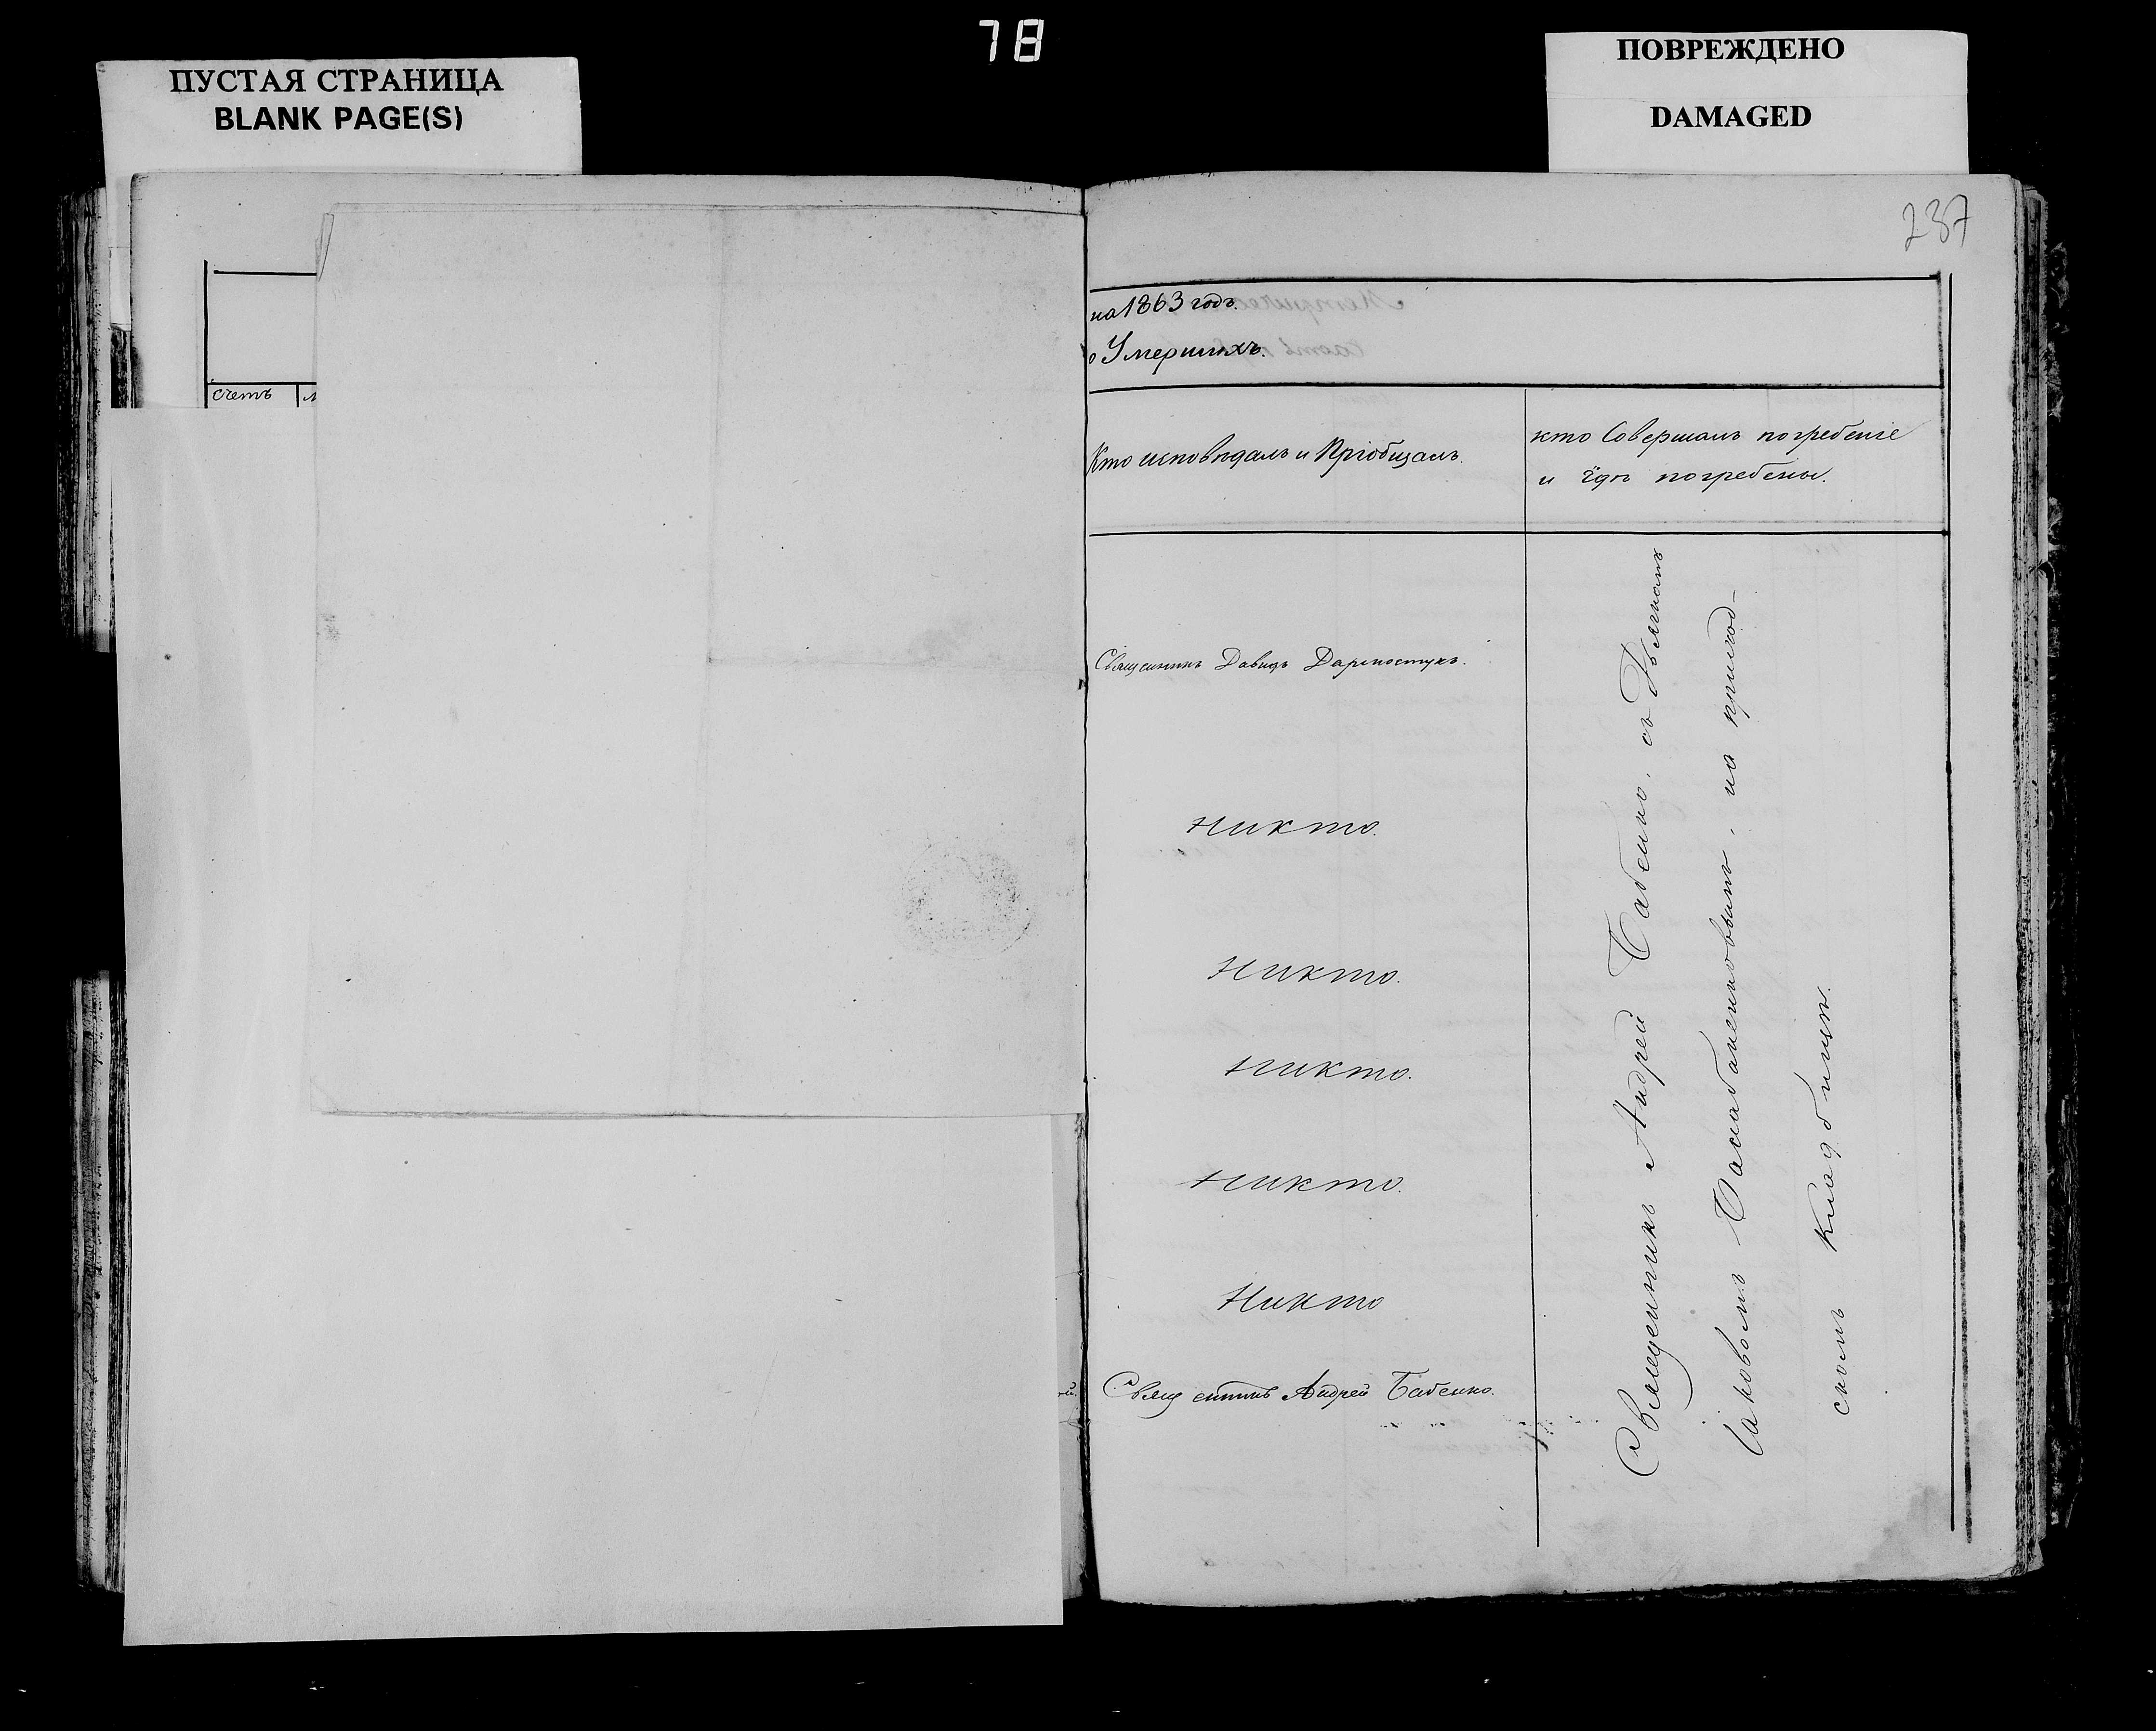 78
ПУСТАЯ СТРАНИЦА
BLANK PAGE(S)
ПОВРЕЖДЕНО
DAMAGED
237
счетъ
на 1863 годъ.
о Умершихъ.
Кто исповѣдалъ и Пріобщалъ.
кто Совершалъ погребеніе
и гдѣ погребены.
Священникъ Давидъ
никто.
никто.
никто.
никто.
Никто
Священникъ Андрей Бабенко.
Священникъ Андрей Бабенко, съ Дьячкомъ
Іаковомъ на приход-
скомъ кладбищѣ.